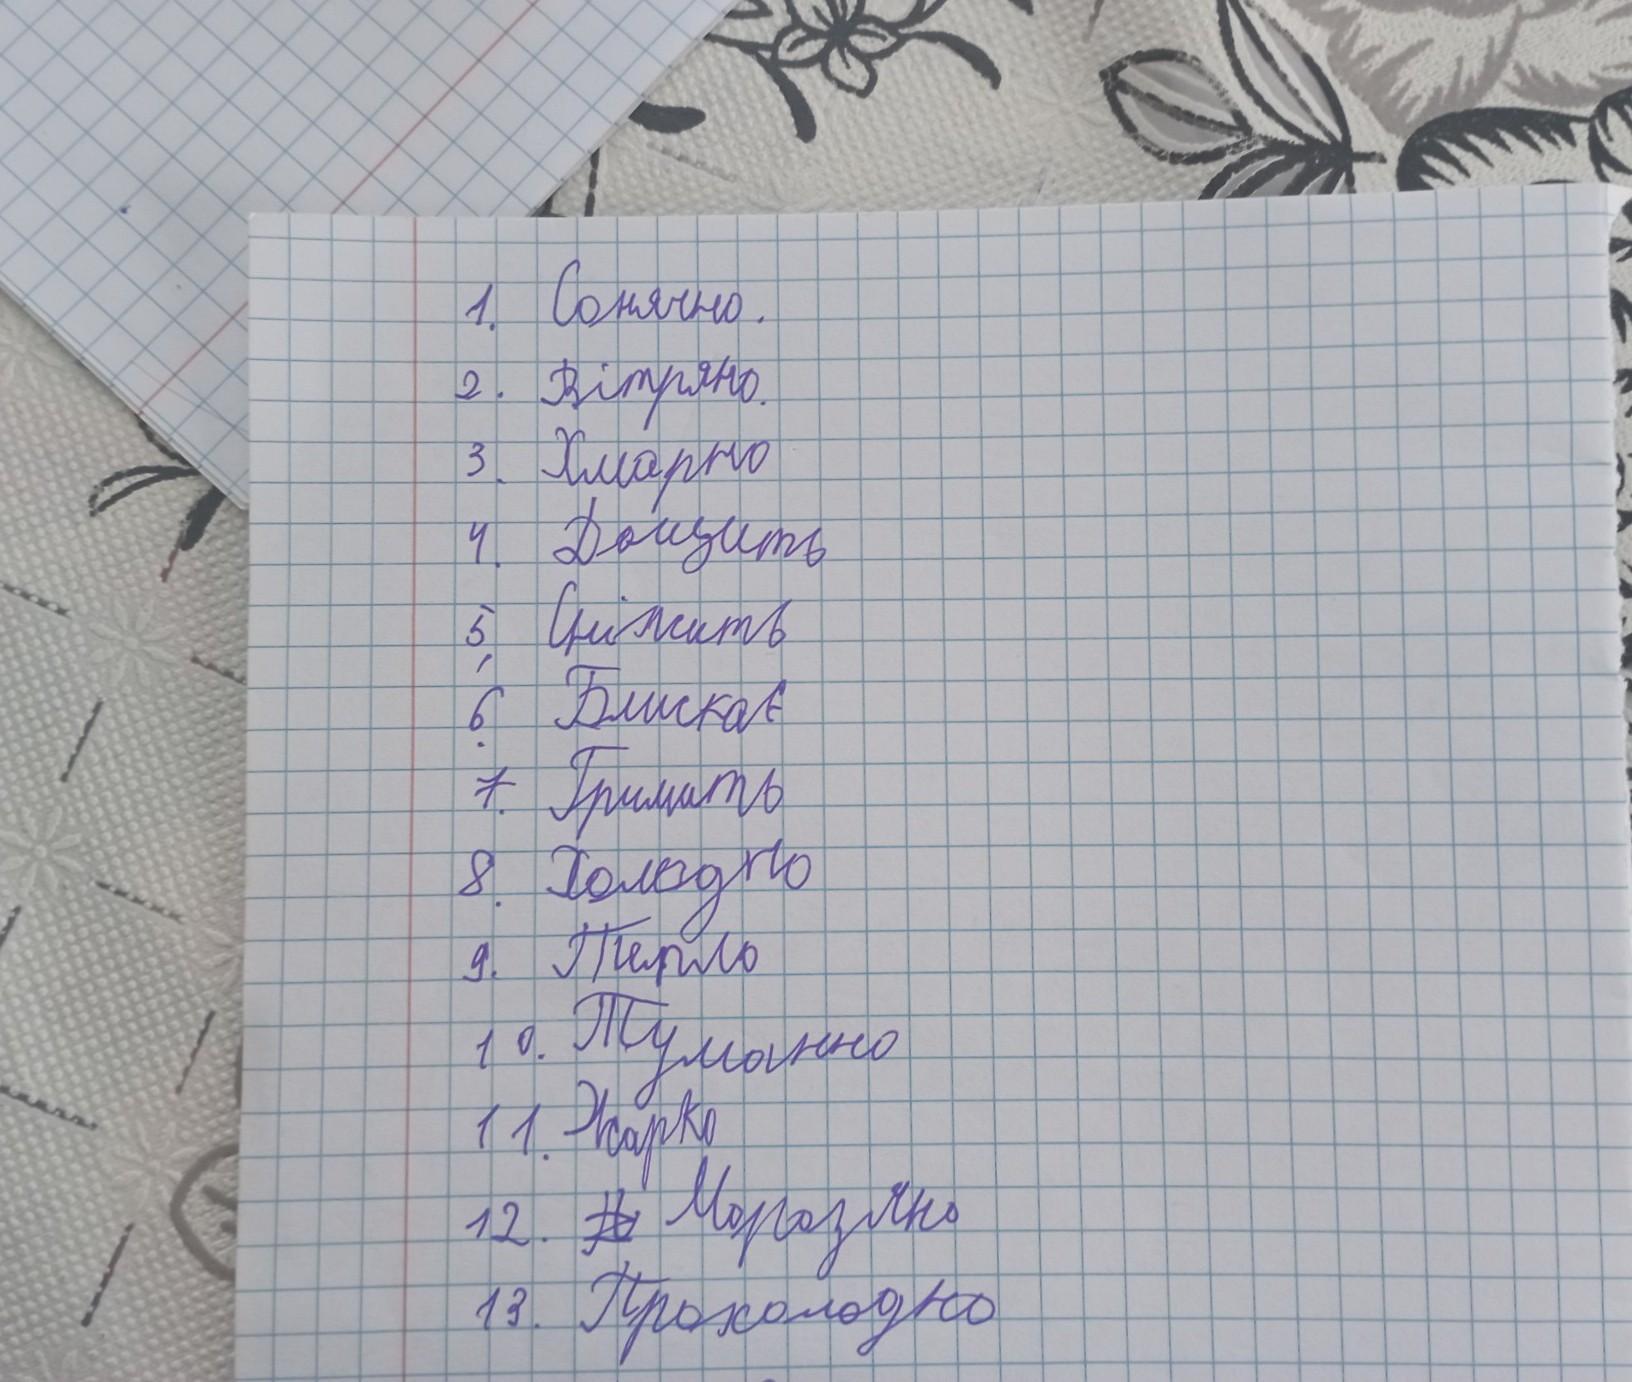 1. Сонячно.
2. Вітряно.
3. Хмарно
4. Дощить
5. Сніжить
6. Блискає
7. Гримить
8. Холодно
9. Тепло
10. Туманно
11. Жарко
12. Морозяно
13. Прохолодно